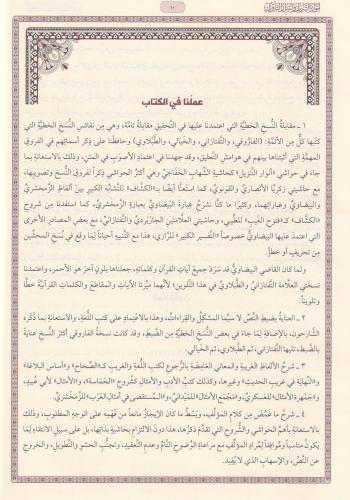 ١٠
عملنا في الكتاب
١ ـ مقابلة النُّسخ الخطيَّة التي اعتمدنا عليها في التحقيق مقابلة تامَّة، وهي من نفائس النُّسخ الخطيَّة التي
كتبها كلٌّ من الأئمَّة: الفاروقي، والتفتازاني، والخيالي، والطبلاوي) وحافظنا على ذكر أسمائهم في الفروق
المهمَّة التي أثبتناها بينهم في هوامش التعليق، وقد جهدنا في اعتماد الأصوب في المتن، وذلك بالاستعانة بما
جاء في حواشي «أنوار التنزيل» كحاشية الشهاب الخفاجي وهي أكثر الحواشي ذكراً لفروق النُّسخ وتصويبها،
مع حاشيتي زكريَّا الأنصاريِّ والقونويِّ، كما استعنَّا أيضاً بـ«الكشَّاف» للتشابه الكبير بين ألفاظ الزَّمخشريِّ
والبيضاويِّ وعباراتهما، وكثيرًا ما كنَّا نشرح عبارة البيضاويِّ بعبارة الزَّمخشريِّ، كما استفدنا من شروح
«الكشَّاف» كـ«فتوح الغيب» للطِّيبي، وحاشيتي العلَّامتين الجاربردي والتفتازاني، مع بعض المصادر الأخرى
التي اعتمد عليها البيضاوي خصوصاً «التفسير الكبير» للرازي، هذا مع التنبيه أحياناً لما وقع في نُسخ المحشِّين
من تحريفٍ أو خطأ.
ولما كان القاضي البيضاوي قد سرَدَ جميعَ آيات القرآن وكلماته، جعلناها بلونٍ آخر هو الأحمر، واعتمدنا
نسختي العلَّامة التفتازاني والطبلاوي في هذا التلوين؛ لأنهما ميَّزتا الآيات والمقاطع والكلمات القرآنيَّة خطًّا
وتلويناً.
٢ ـ العناية بضبط النصِّ لا سيَّما المشكل والقراءات، وهذا بالاعتماد على كتب اللُّغة، والاستعانة بما ذكره
الشارحون، بالإضافة لما جاء في بعض النُّسخ الخطيَّة من الضبط، وقد كانت نسخة الفاروقي أكثر النُّسخ عناية
بالضبط، تليها التفتازاني، ثم الطبلاوي، ثم الخيالي.
٣ ـ شرح الألفاظ الغريبة والمعاني الغامضة بالرُّجوع لكتب اللُّغة والغريب كـ«الصِّحاح» و«أساس البلاغة»
و«النهاية في غريب الحديث» وغيرها، وكذلك كتب الأدب والأمثال كشروح «الحماسة»، و«الأمثال» لأبي عُبيد،
و«جمهرة الأمثال» للعسكري، و«مجمع الأمثال» للميداني، و«المستقصى في أمثال العرب» للزمخشري.
٤ ـ شرح ما غمُض من كلام المؤلِّف، وبسط ما كان الإيجاز مانعاً من فهمه على الوجه المطلوب، وذلك
بالاستعانة بأهمِّ الحواشي والشروح التي تقدَّم ذكرُها، هذا دون الالتزام بحاشيةٍ بذاتها، بل على سبيل الانتقاء لِمَا
يكون مناسباً وموافقاً لمراد المؤلِّف مع مراعاة الوضوح التامِّ وعدم التعقيد، وتجنُّب الحشو والتطويل، والخروج
عن النصِّ، والإسهاب الذي لا يُفيد.